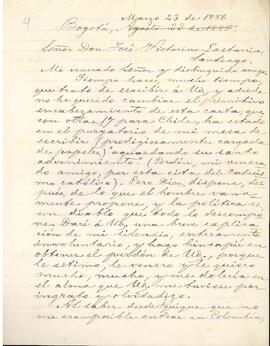 4
Marzo 23 de 1886
Bogotá, Agosto 23 de 1885.
Señor Don José Victorino Lastarria
Santiago.
Mi venerado Señor y distinguido amigo,
Tiempo hace, mucho tiempo
que trato de escribir á Ud, y adrede
no he querido cambiar el primitivo
encabezamiento de esta carta que
con otras 17 para Chile, ha estado
en el purgatorio de mi mesa de
escribir (prodigiosamente cargada
de papeles) aguardando su santo
advenimiento. (Perdón, mi venera-
do amigo, por esta cita del catecis-
mo católico). Pero Dios dispone, des-
pués de lo que el hombre vana-
mente propone, y la política es
un diablo que todo lo descompo-
ne. Daré á Ud, una breve explica-
ción de mi silencio, enteramente
involuntario, y hago hincapié en
obtener el perdón de Ud., porque
le estimo, le venero y le quiero
mucho, mucho, y me dolería en
el alma que Ud, me tuviese por
ingrato y olvidadizo.
Al saber desde Iquique que no
me era posible entrar en Colombia,